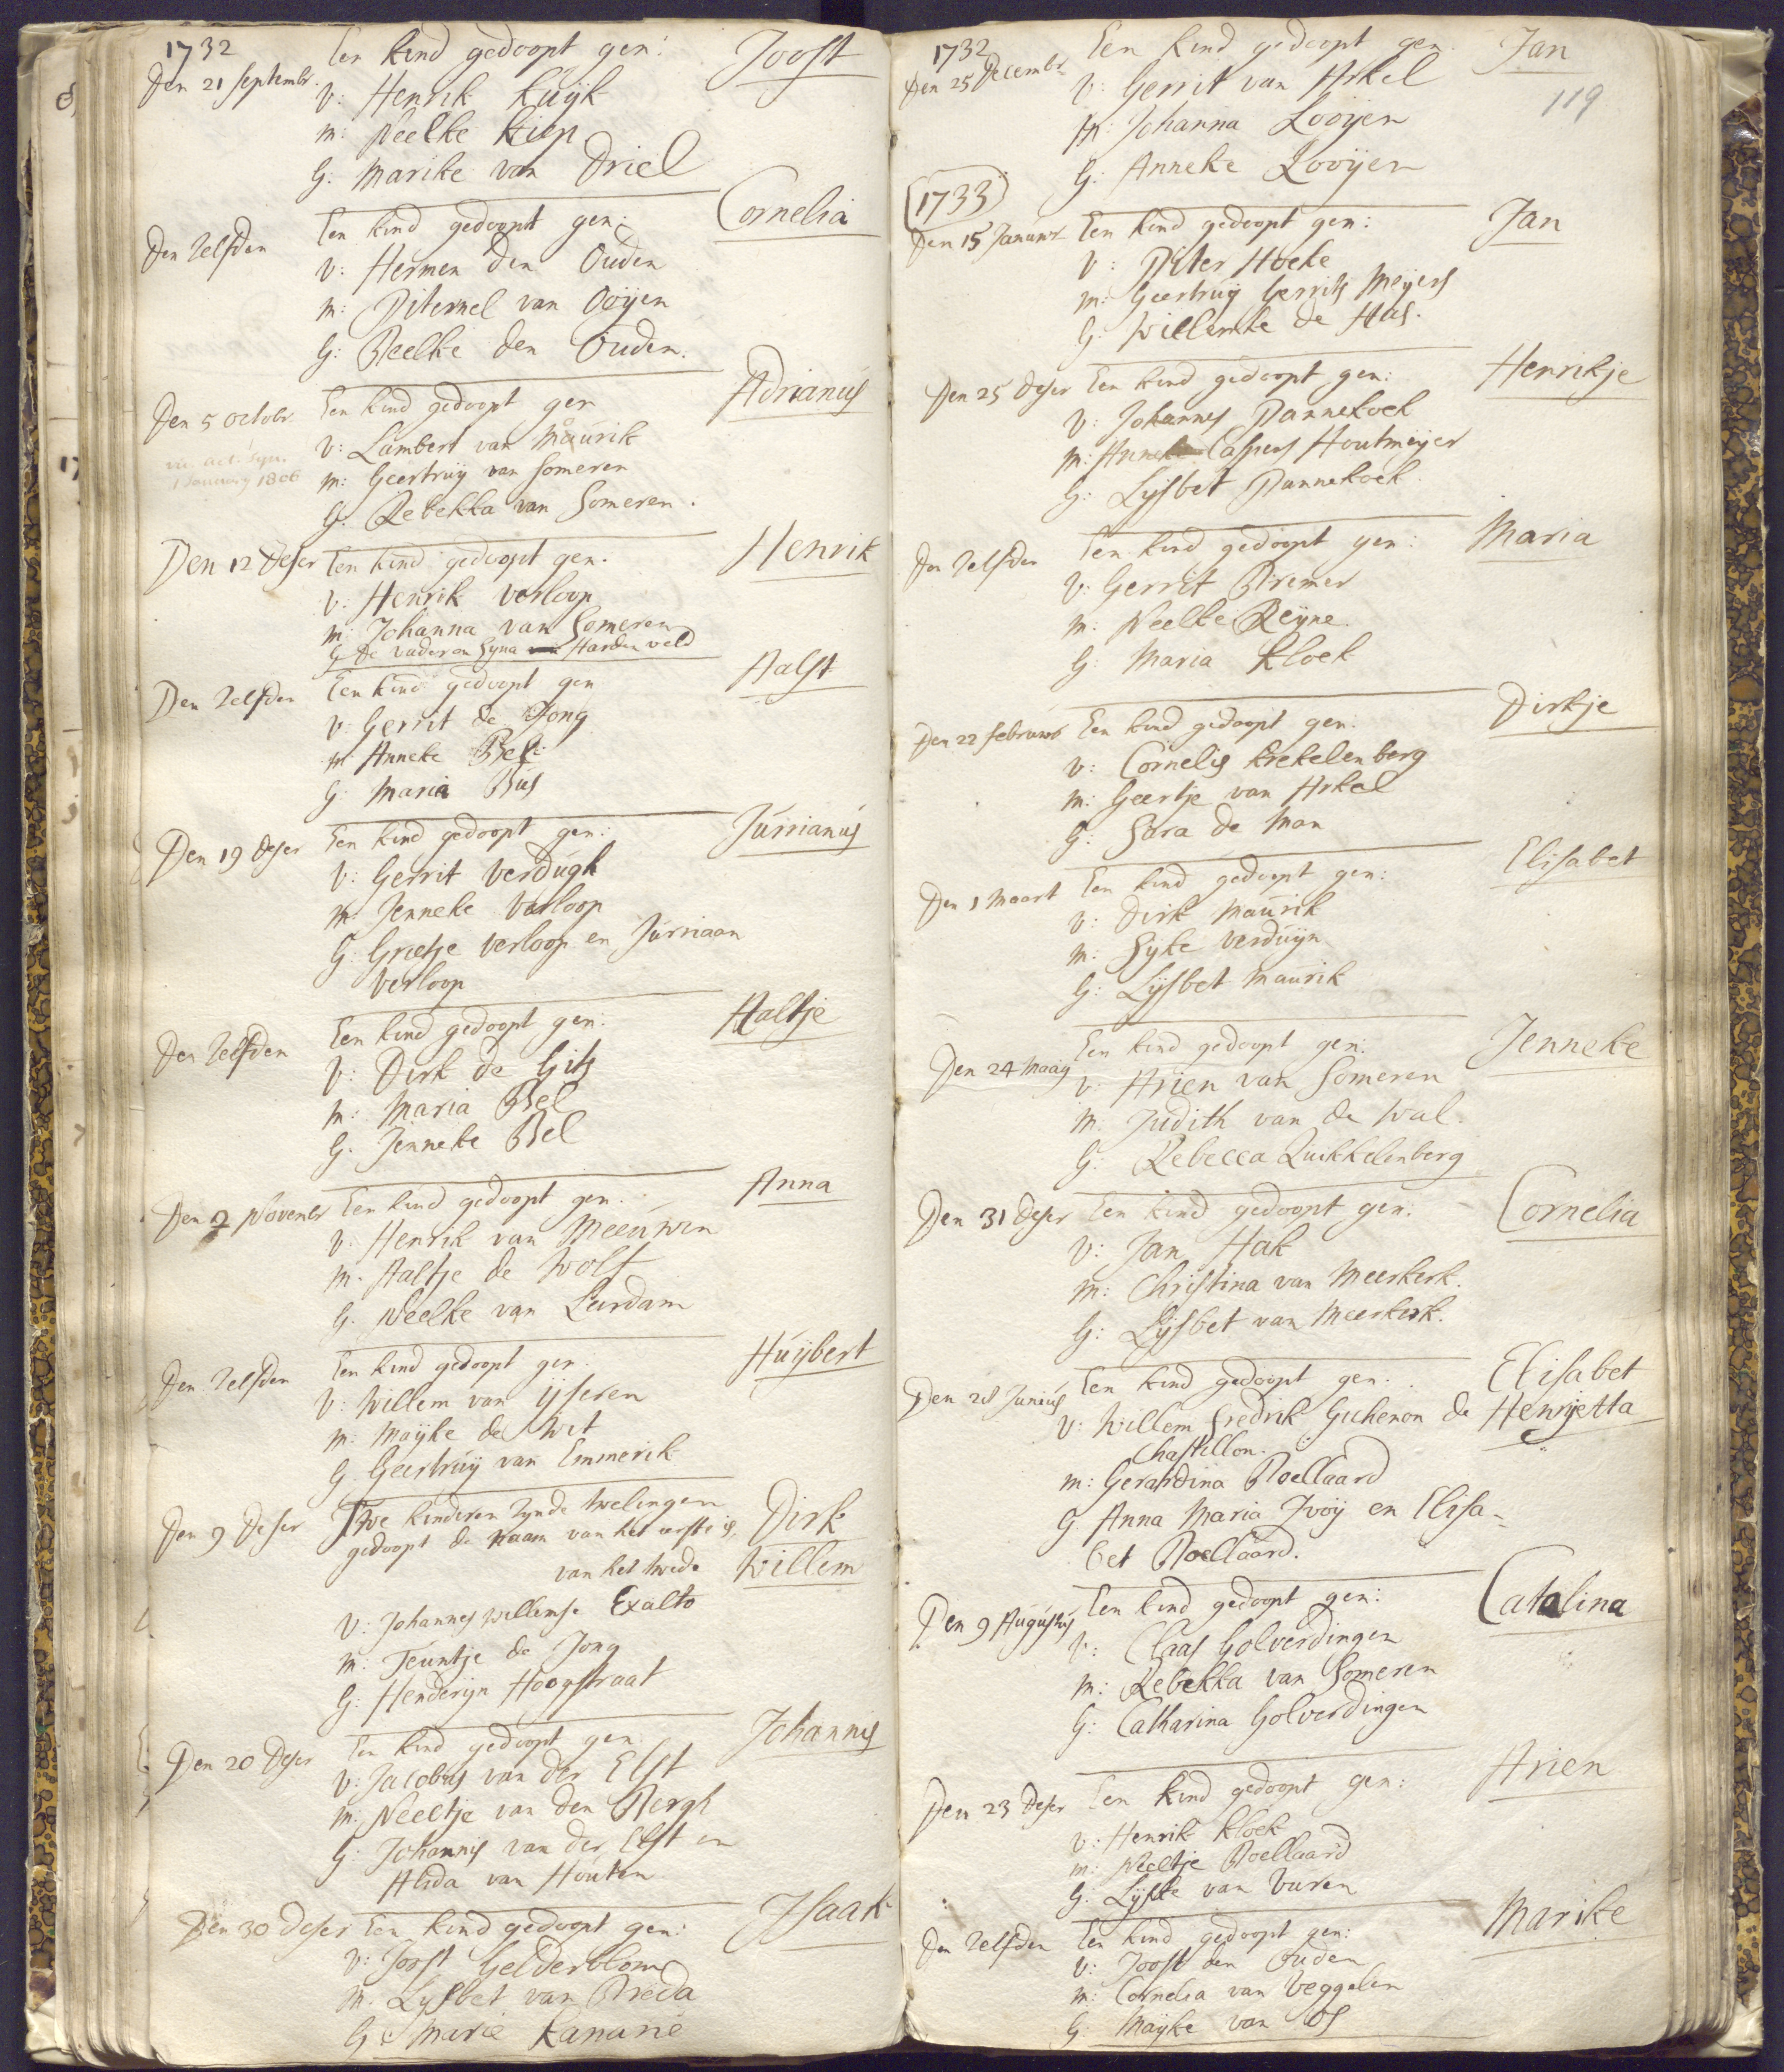 1732
Den 21 Septembr. Een kind gedoopt gen: Joost
V: Henrik Kuÿk
M: Neelke Kiep
G: Marike van Driel
Den Zelfden Een kind gedoopt gen: Cornelia
V: Hermen den Ouden
M: Piternel van Ooÿen
G: Neelke den Ouden.
Den 5 Octobr Een kind gedoopt gen Adrianus
V: Lambert van Maurik
M: Geertruÿ van Someren
G: Rebekka van Someren.
1 January 1806
Den 12 deser Een kind gedoopt gen. Henrik
V: Henrik Verloop
M: Johanna van Someren
G De vader en Hardenveld
Den Zelfden Een kind gedoopt gen Aalst
V: Gerrit de Jong
M: Anneke Bel
G: Maria Bus
Den 19 deser Een kind gedoopt gen: Jurrianus
V: Gerrit Verdugh
M: Jenneke Verloop
G: Grietje Verloop en Jurriaan
Verloop
Den Zelfden Een kind gedoopt gen: Aaltje
V: Dirk de Gits
M: Maria Bel
G: Jenneke Bel
Den 2 Novembr Een kind gedoopt gen. Anna
V: Henrik van Meeuwen
M: Aaltje de Wolf
G. Neelke van Leerdam
Den Zelfden Een kind gedoopt gen. Huÿbert
V: Willem van ÿseren
M: Maÿke de Wit
G. Geertruÿ van Emmerik
Den 9 deser Twe kinderen zynde twelingen
gedoopt de naam van het eerste is, Dirk
van het twede Willem
V: Johannes Willemse Exalto
M: Teuntje de Jong
G: Henderyn Hoogstraat
Den 20 deser Een kind gedoopt gen. Johannis
V: Jacobus van der Elst
M: Neeltje van den Bergh
G: Johannis van der Elst en
Alida van Houten
Den 30 deser Een kind gedoopt gen: Isaak
V: Joost Gelderblom
M. Lysbet van Breda
G: Marie Kanarie
1732 119
Den 25 Decembr Een kind gedoopt gen. Jan
V: Gerrit van Arkel
M: Johanna Looÿen
G: Anneke Looÿen
1733
Den 15 Januwr Een kind gedoopt gen: Jan
V: Piter Hoeke
M: Geertruÿ Gerrits Meÿers
G: Willemke de Has.
Den 25 deser Een kind gedoopt gen: Henrikje
V: Johannes Pannekoek
M: Anneke Caspers Houtmeÿer
G: Lÿsbet Pannekoek
Den Zelfden Een kind gedoopt gen: Maria
V: Gerrit Bremer
M: Neelke Reÿne.
G: Maria Kloek
Den 22 februwr Een kind gedoopt gen. Dirkje
V: Cornelis Krekelenberg
M: Geertje van Arkel
G: Sara de Man
Den 1 Maart Een kind gedoopt gen: Elisabet
V: Dirk Maurik
M: Syke Verduÿn
G: Lÿsbet Maurik
Den 24 Maaÿ Een kind gedoopt gen: Jenneke
V: Arien van Someren
M. Judith van de Wal.
G: Rebecca Quikkelenberg
Den 31 deser Een kind gedoopt gen: Cornelia
V: Jan Hak
M: Christina van Meerkerk.
G: Lÿsbet van Meerkerk.
Den 28 Junius Een kind gedoopt gen. Elisabet
V: Willem Fredrik Guchenon de Henrÿetta
Chastillon.
M: Gerardina Roellaard
G Anna Maria Ivoÿ en Elisa-
bet Roellaard.
Den 9 Augustus Een kind gedoopt gen: Catalina
V: Claas Golverdingen
M: Rebekka van Someren
G: Catharina Golverdingen
Den 23 deser Een kind gedoopt gen: Arien
V: Henrik Kloek
M: Neeltje Roellaard
G: Lÿske van Vuren
Den Zelfden Een kind gedoopt gen: Marike
V: Joost den Ouden
M: Cornelia van Veggelen
G: Maÿke van Os